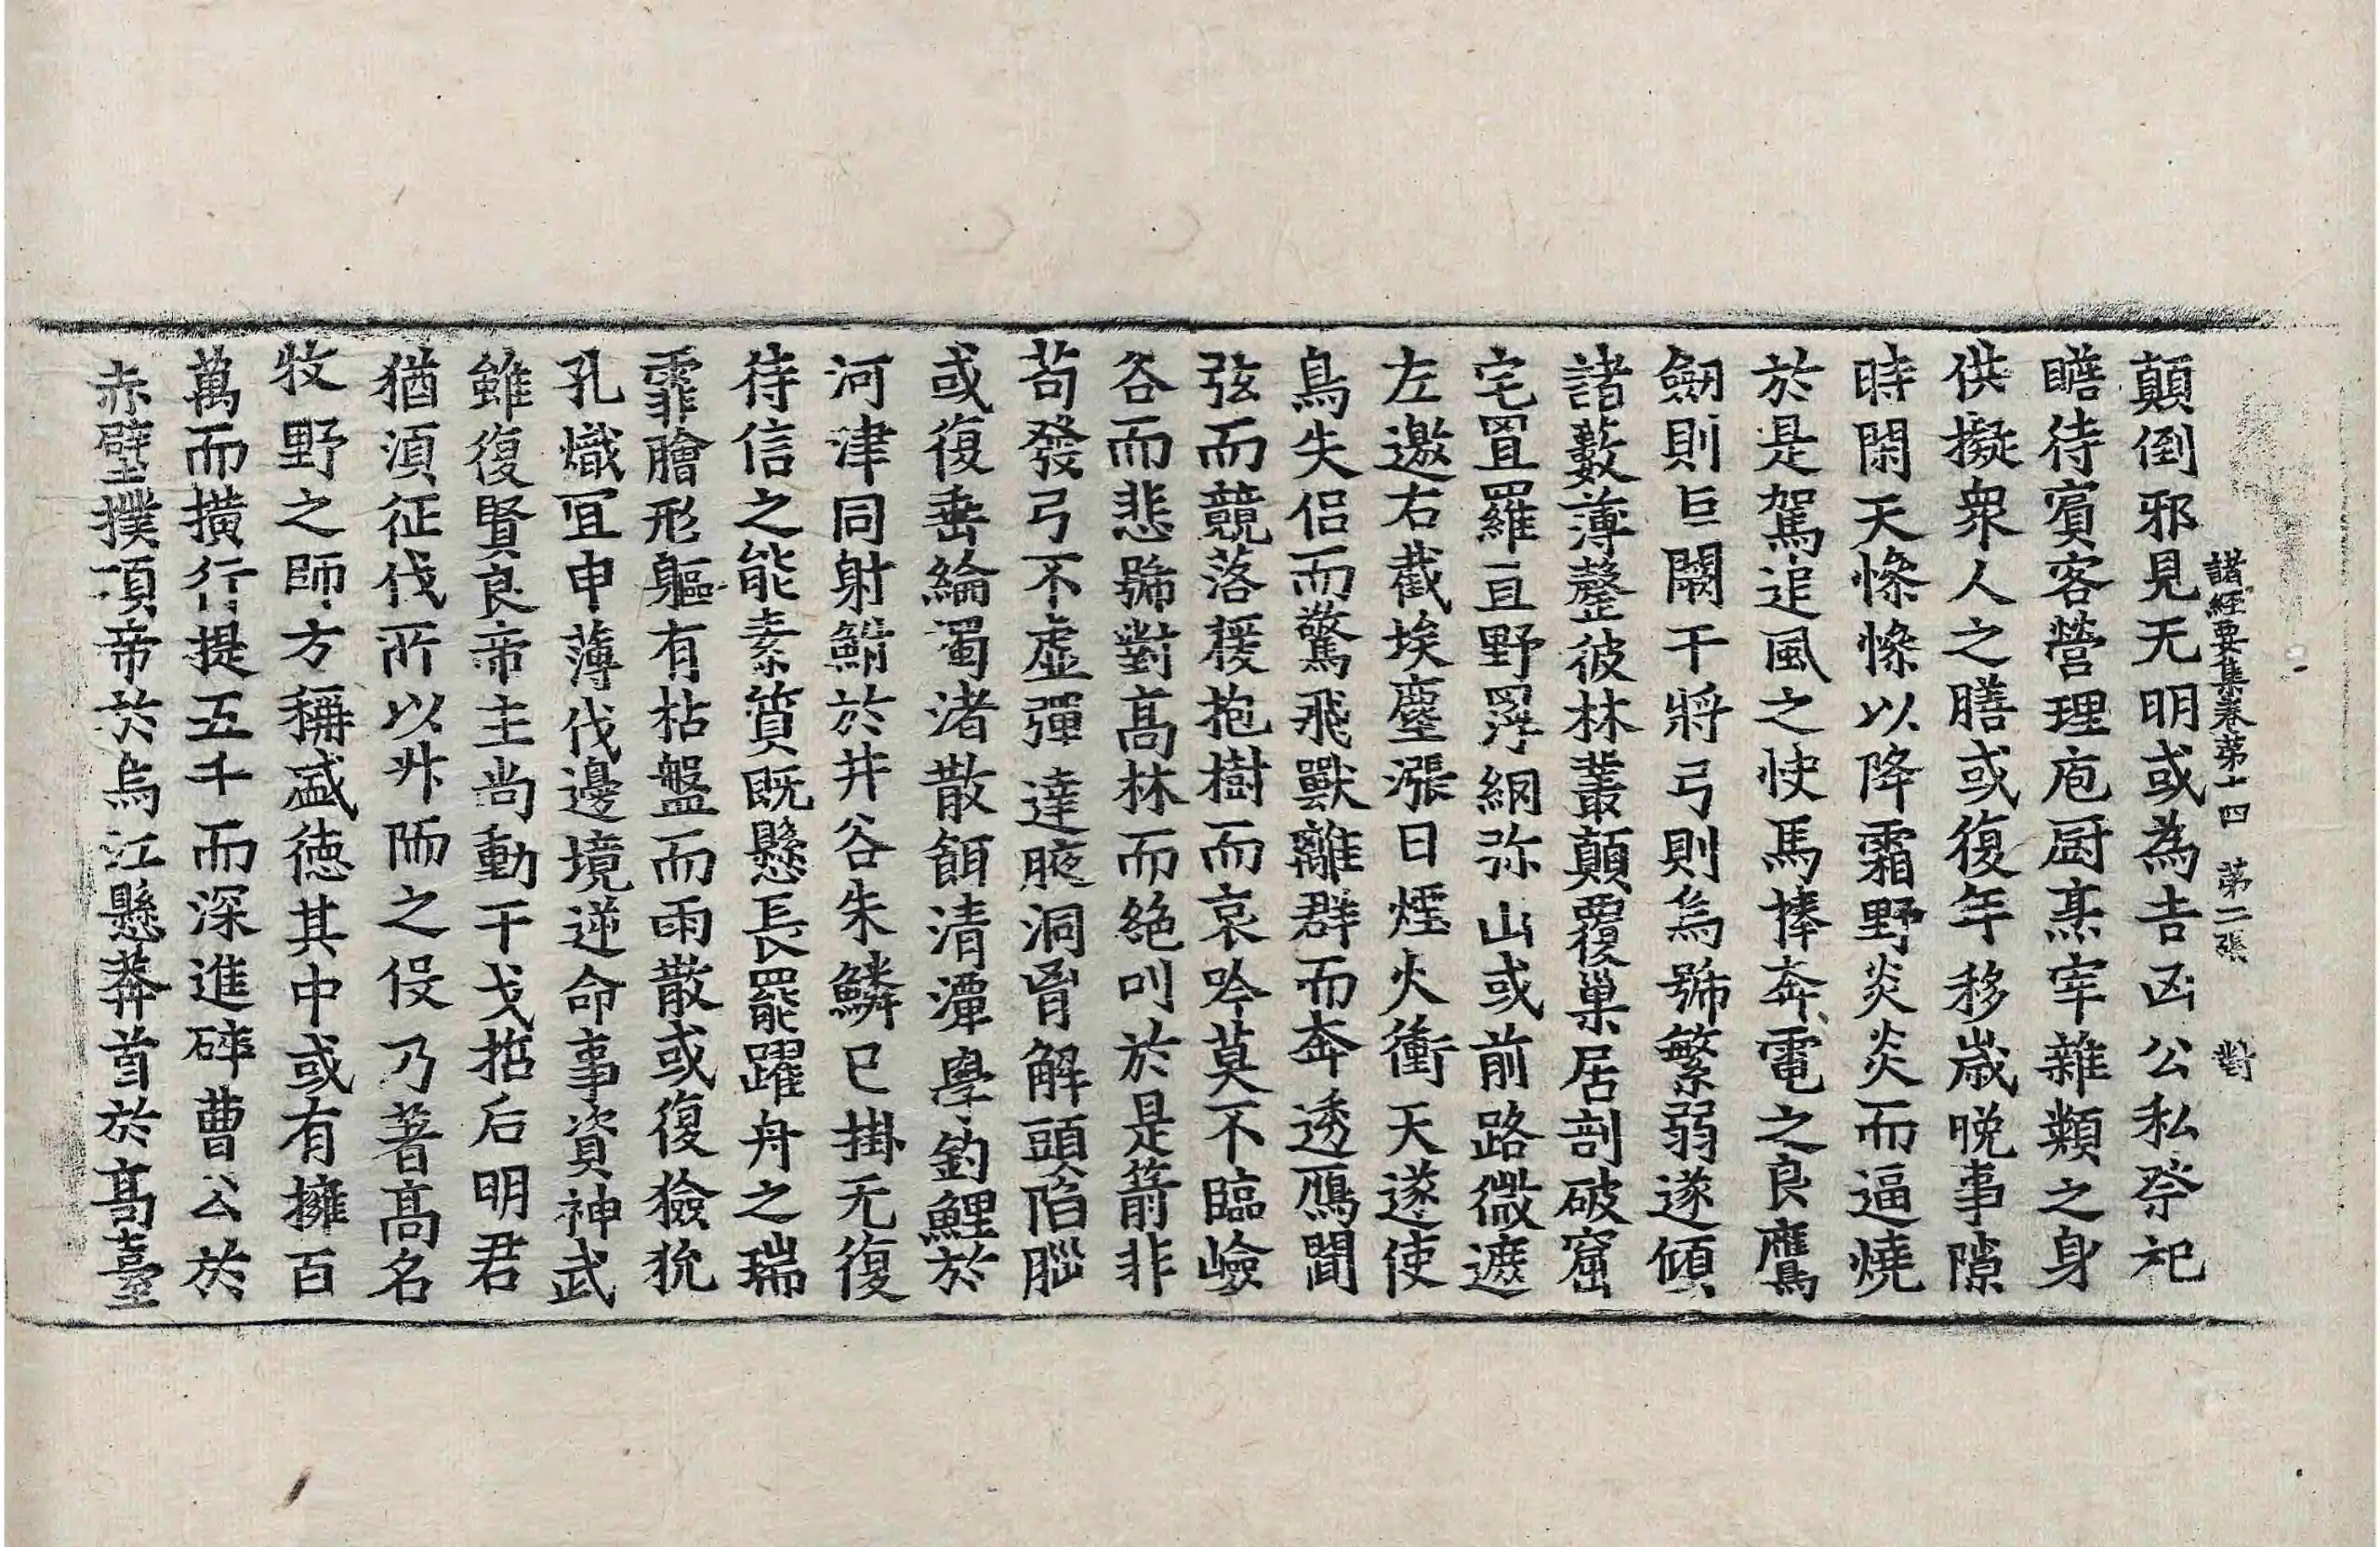 諸經要集卷第十四 第二張 對
顛倒邪見无明或為吉凶公私祭祀
瞻待賓客營理庖厨烹宰雜類之身
供擬衆人之膳或復年移歲晚事隙
時閑天慘慘以降霜野炎炎而逼燒
於是駕追風之快馬捧奔電之良鷹
劒則巨闕干將弓則烏號繁弱遂傾
諸藪薄罄彼林叢顛覆巢居剖破窟
宅罝羅亘野罦網弥山或前路微遮
左邀右截埃塵漲日煙火衝天遂使
鳥失侣而驚飛獸離群而奔透鴈聞
弦而競落猨抱樹而哀吟莫不臨嶮
谷而悲號對髙林而絶叫於是箭非
苟發弓不虚彈達腋洞胷解頭陷腦
或復垂綸濁渚散餌清潭學釣鯉於
河津同射鮒於井谷朱鱗已掛无復
待信之能素質既懸長罷躍舟之瑞
霏膾形軀有枯盤而雨散或復獫狁
孔熾冝申薄伐邊境逆命事資神武
雖復賢良帝主尚動干戈招后明君
猶湏征伐所以升陑之伇乃著髙名
牧野之師方稱盛徳其中或有擁百
萬而横行提五千而深進碎曹公於
赤壁撲項帝於烏江懸莽首於髙臺